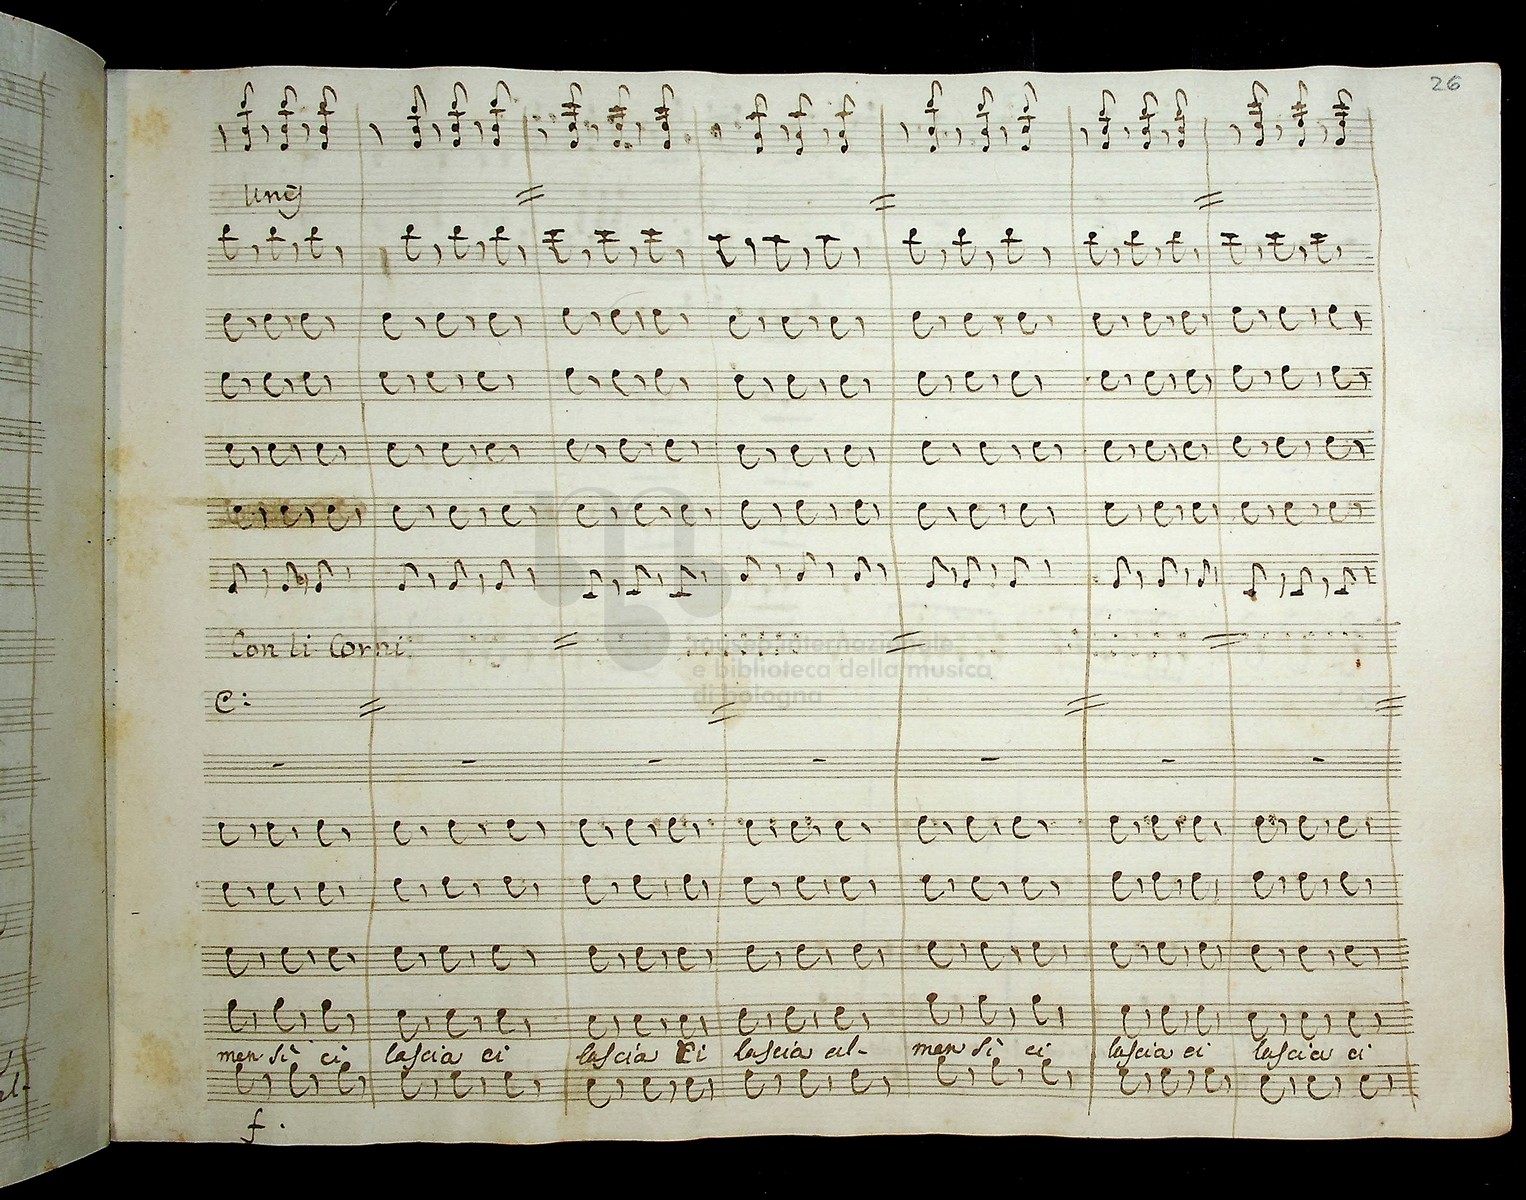 26
Unĩ
Con li Corni
C:
men si ci lascia ci lascia ci lascia al- men si ci lascia ci lascia ci
f.
al-
museo internazionale
e biblioteca della musica
di bologna